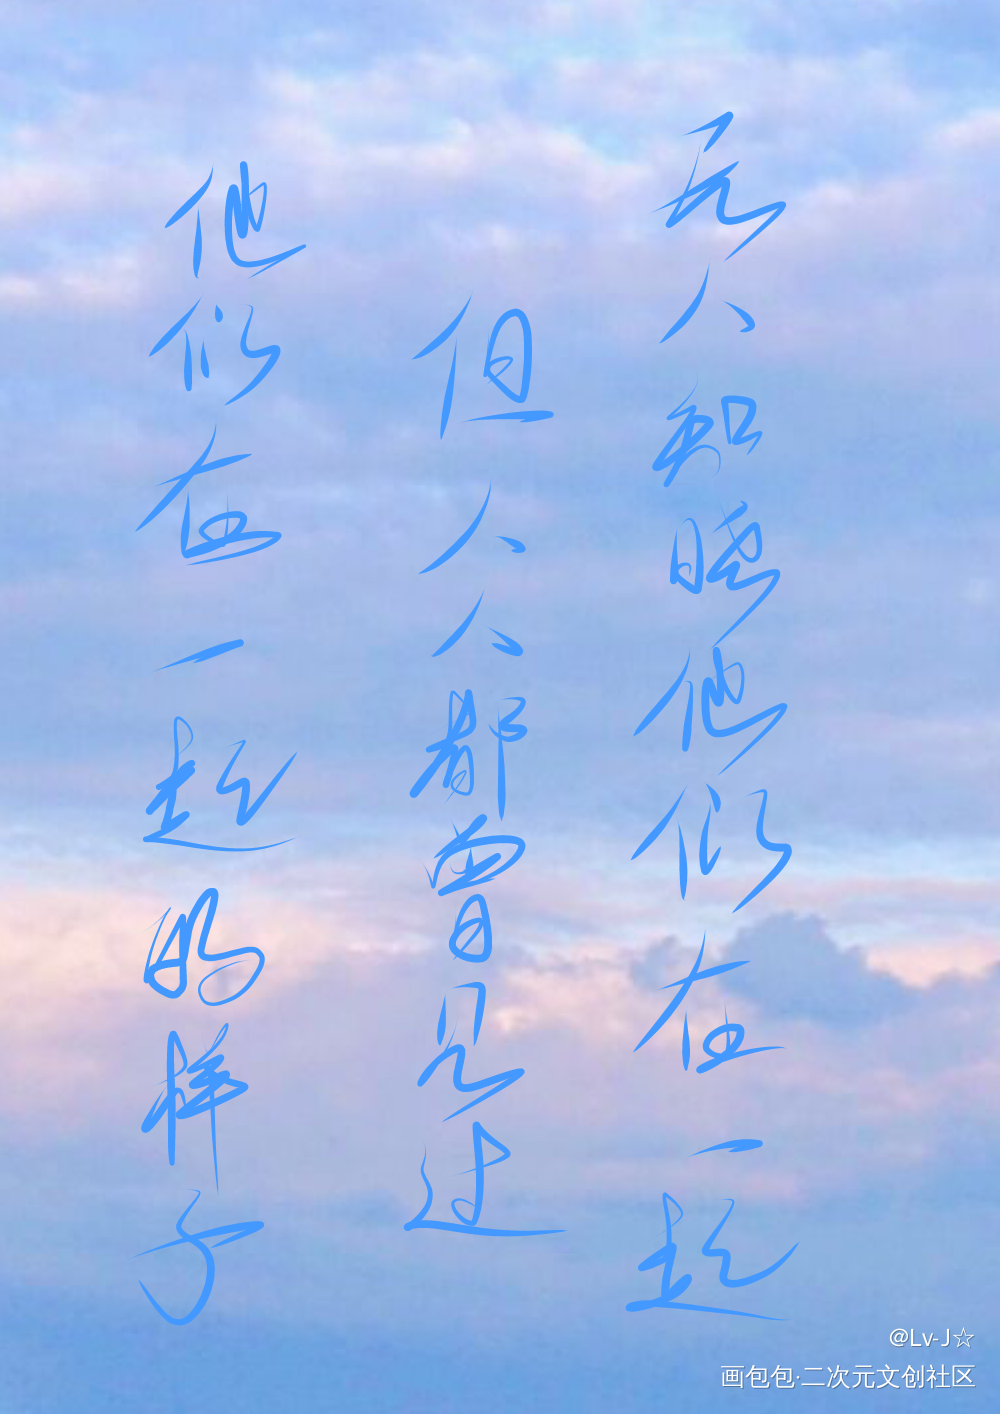 无人知晓他们在一起
但人人都曾见过
他们在一起的样子
@Lv-J☆
画包包·二次元文创社区